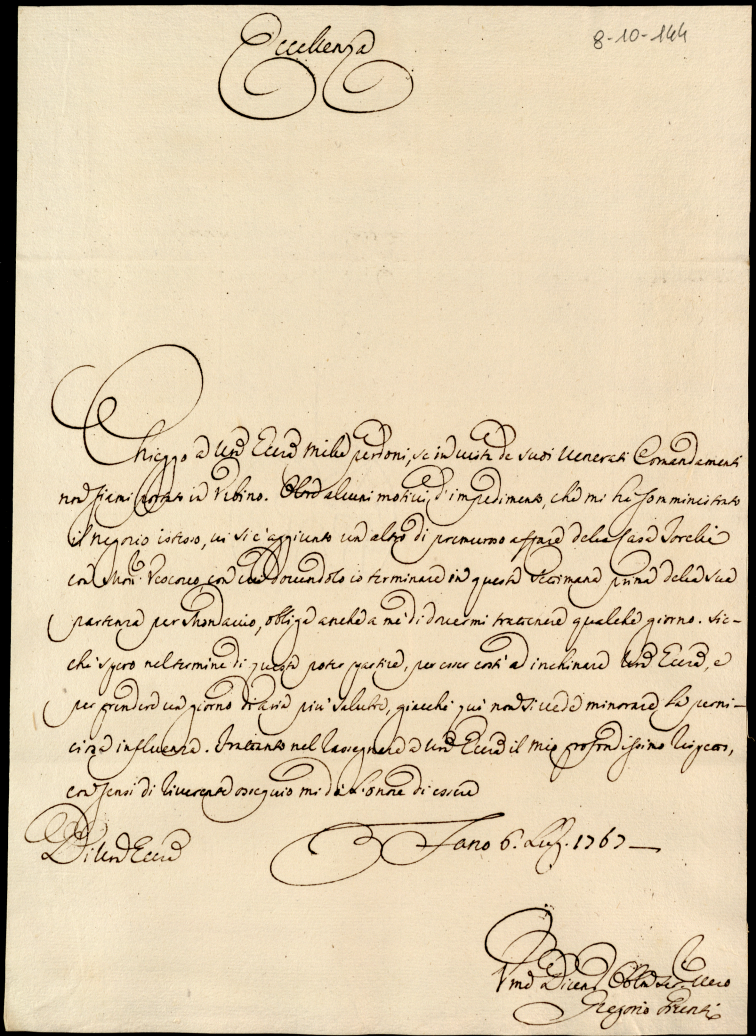 8-10-144
Eccellenza
Chieggo a Vra Eccza mille perdoni, se in vista de suoi venerati Comandamenti
non siami portato in Urbino. Oltre alcuni motivi d'impedimento, che mi ha somministrato
il negozio istesso, vi si è aggiunto un altro di premuroso affare della Casa Torelli
con Mons. Vescovo, con cui dovendolo io terminare in questa settimana prima della sua
partenza per Mondavio, obliga anche a me di dovermi trattenere qualche giorno. Sic-
che spero nel termine di questa poter partire, per esser costì ad inchinare Vra Eccza, e
per prendere un giorno di aria più salubre, giacchè quì non si vede minorare la perni-
ciosa influenza. Frattanto nel rassegnare a Vra Eccza il mio profondissimo rispetto,
con sensi di riverente ossequio mi dà l'onore di essere
Di Vra Eccza
Fano 6. Lug. 1767
Umo Devmo Oblmo Ser. Vero
Gregorio